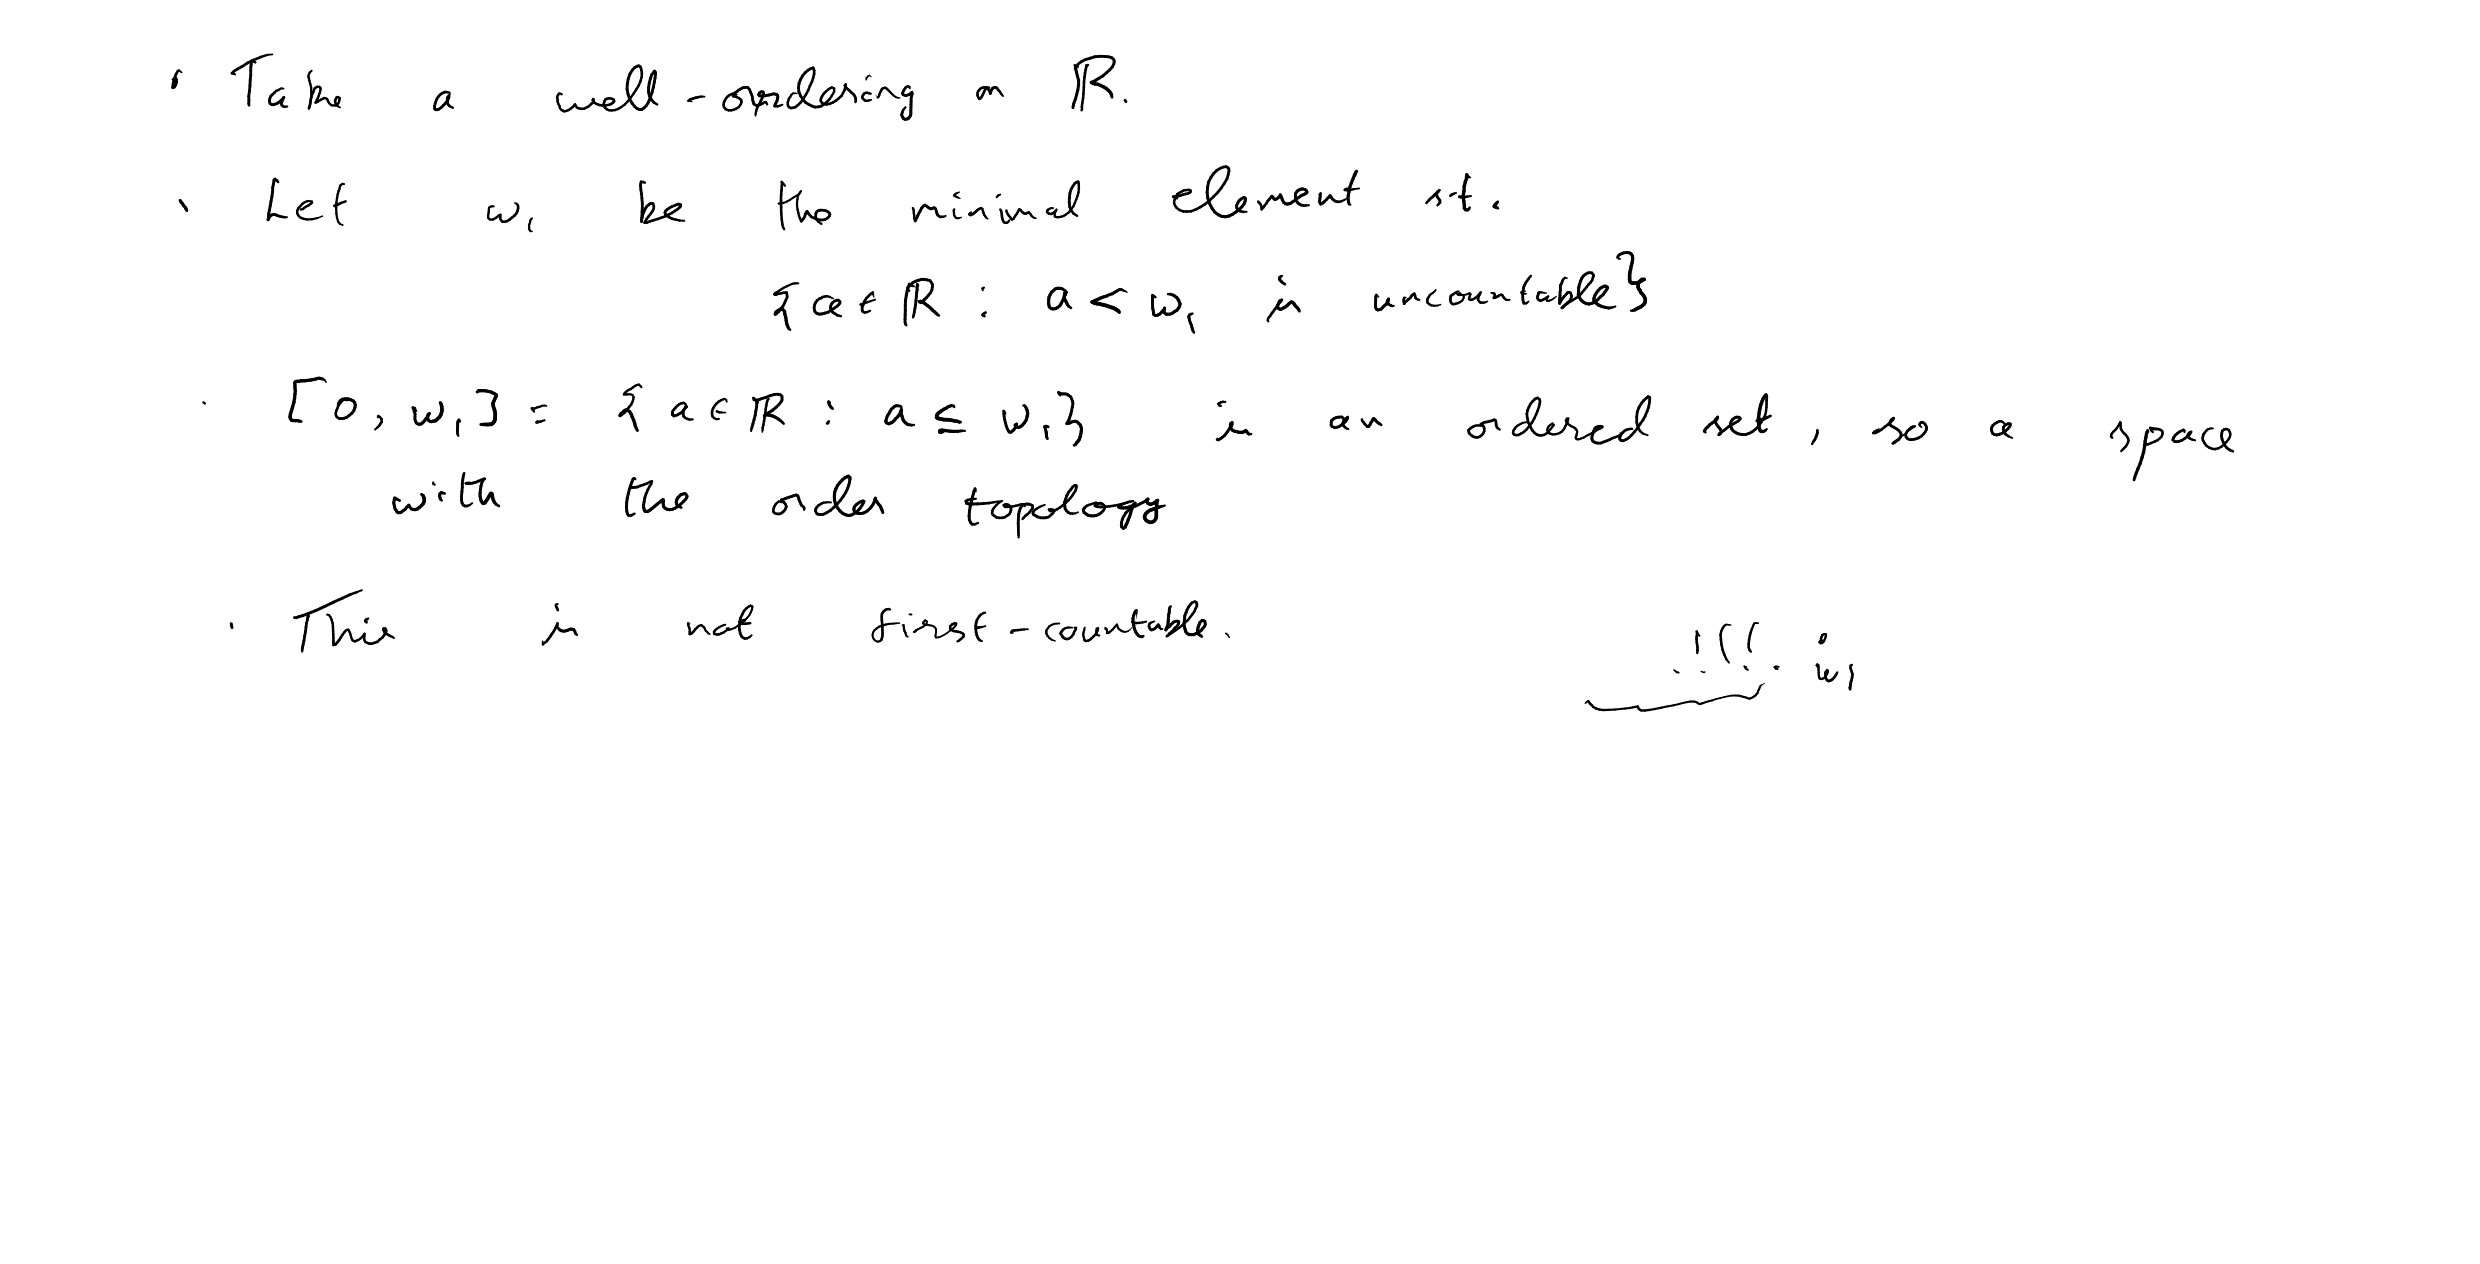 · Take a well-ordering on ℝ.
· Let ω₁ be the minimal element s.t.
{a ∈ ℝ : a < ω₁ is uncountable}
· [0, ω₁] = {a ∈ ℝ : a ≤ ω₁} is an ordered set, so a space
with the order topology
· This is not first-countable.
ω₁